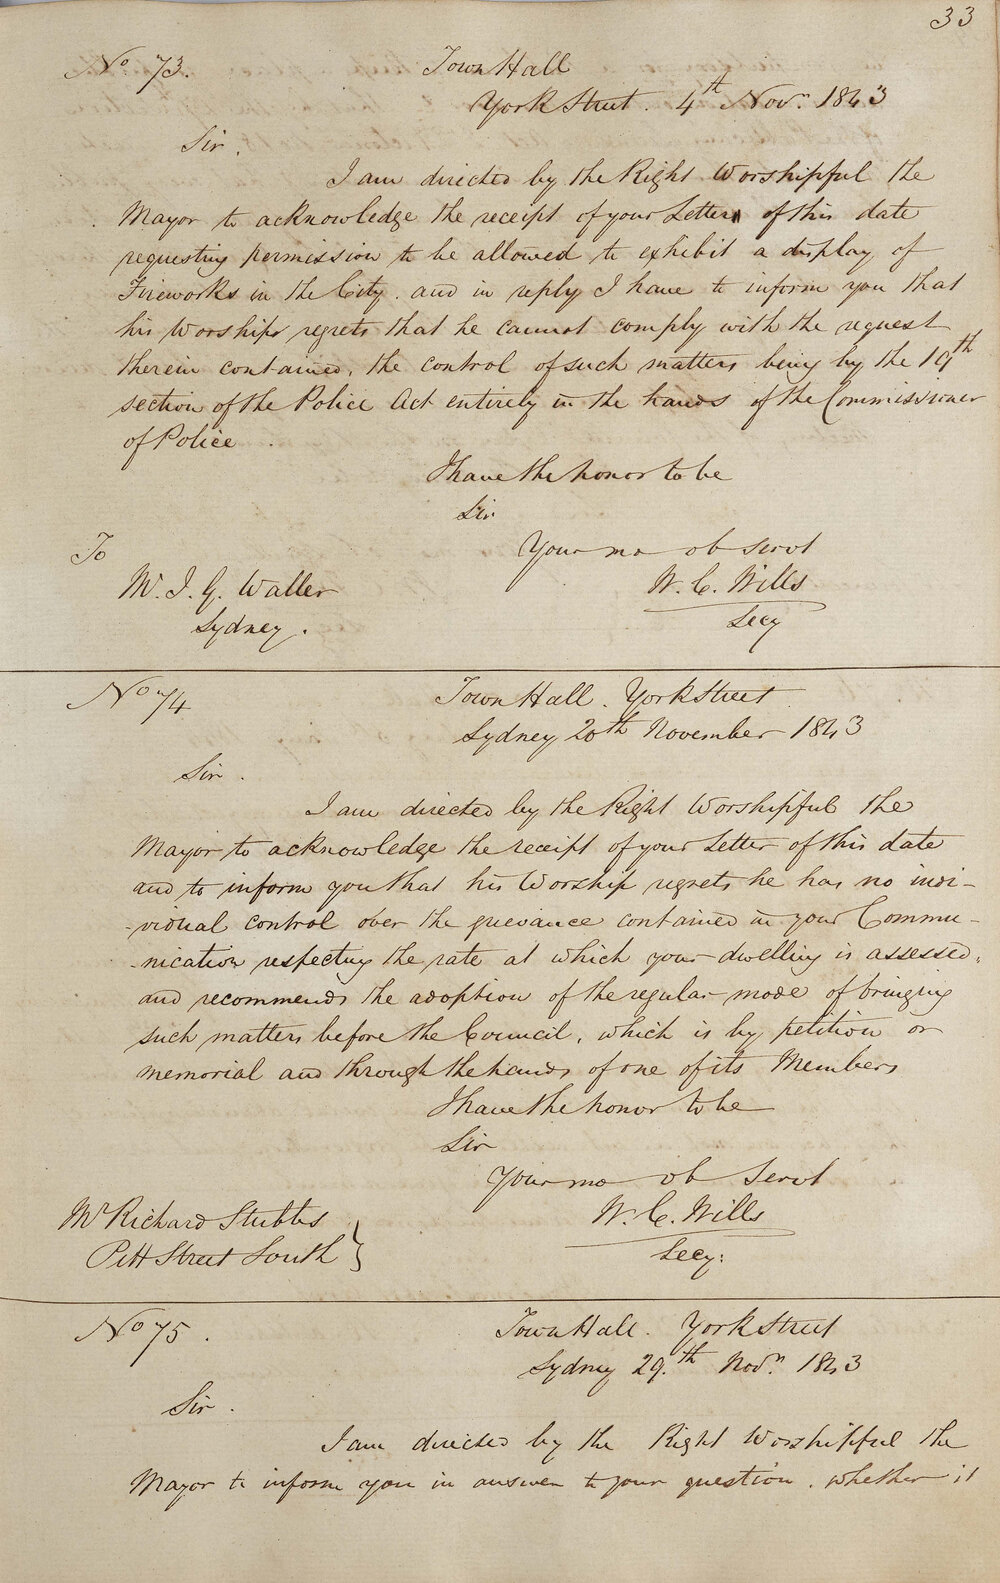 33
No 73.
Town Hall
York Street. 4th Novr. 1843
Sir.
I am directed by the Right Worshipful the
Mayor to acknowledge the receipt of your Letter of this date
requesting permission to be allowed to exhibit a display of
Fireworks in the City. and in reply I have to inform you that
his Worship regrets that he cannot comply with the request
therein contained, the control of such matters being by the 19th
section of the Police Act entirely in the hands of the Commissioner
of Police.
I have the honor to be
Sir
Your mo ob servt
W. C. Wills
Secy
To
Mr. J. G. Waller
Sydney.
No 74
Town Hall. York Street
Sydney 20th November 1843
Sir.
I am directed by the Right Worshipful the
Mayor to acknowledge the receipt of your Letter of this date
and to inform you that his Worship regrets he has no indi-
-vidual control over the grievance contained in your Commu-
-nication respecting the rate at which your dwelling is assessed,
and recommends the adoption of the regular mode of bringing
such matters before the Council, which is by petition or
memorial and through the hands of one of its Members
I have the honor to be
Sir
Your mo ob Servt
W. C. Wills
Secy:
Mr Richard Stubbs
Pitt Street South }
No 75.
Town Hall. York Street
Sydney 29.th Novr. 1843
Sir.
I am directed by the Right Worshipful the
Mayor to inform you in answer to your question. whether it